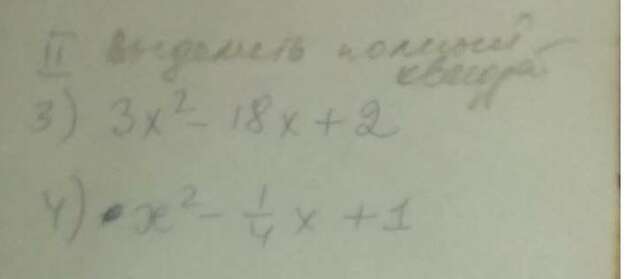 II Выделить полный
квадрат
3) 3x² - 18x + 2
4) x² - 1/4 x + 1